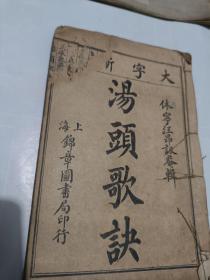 大字斷
休寧汪昂訒菴輯
湯頭歌訣
上海錦章圖書局印行